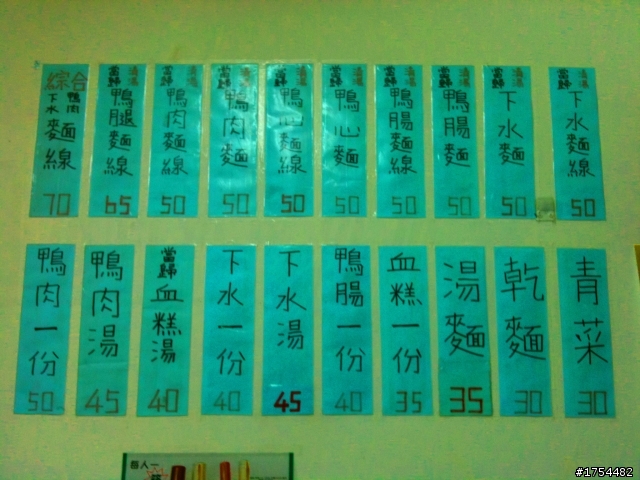 綜合 下水 鴨肉 麵線 70
當歸 清湯 鴨腿麵線 65
當歸 清湯 鴨肉麵線 50
當歸 清湯 鴨肉麵 50
當歸 清湯 鴨心麵線 50
當歸 清湯 鴨心麵 50
當歸 清湯 鴨腸麵線 50
當歸 清湯 鴨腸麵 50
當歸 清湯 下水麵 50
當歸 清湯 下水麵線 50
鴨肉一份 50
鴨肉湯 45
當歸血糕湯 40
下水一份 40
下水湯 45
鴨腸一份 40
血糕一份 35
湯麵 35
乾麵 30
青菜 30
每人一
#1754482